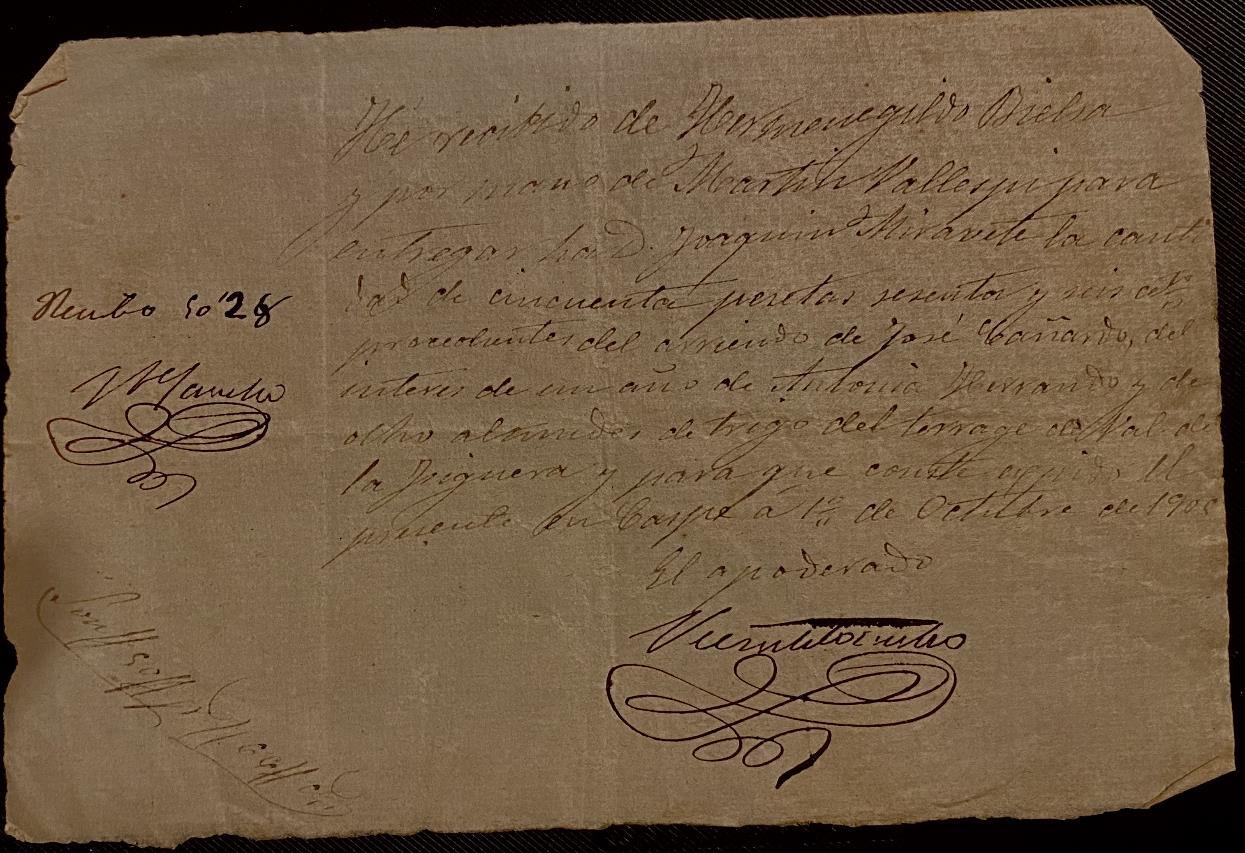 Hé recibido de Hermenegildo Bielsa
y por mano de Martin Vallespi para
entregar ha D. Joaquin Miravete la canti
dad de cincuenta pesetas sesenta y seis cts
procedentes del arriendo de José Cañardo, del
interes de un año de Antonia Herrando y de
olho almudes de trigo del terrage de Val de
la Figuera y para que conste espido el
presente en Caspe a 1º de Octubre de 190
El apoderado
Recibo 50'28